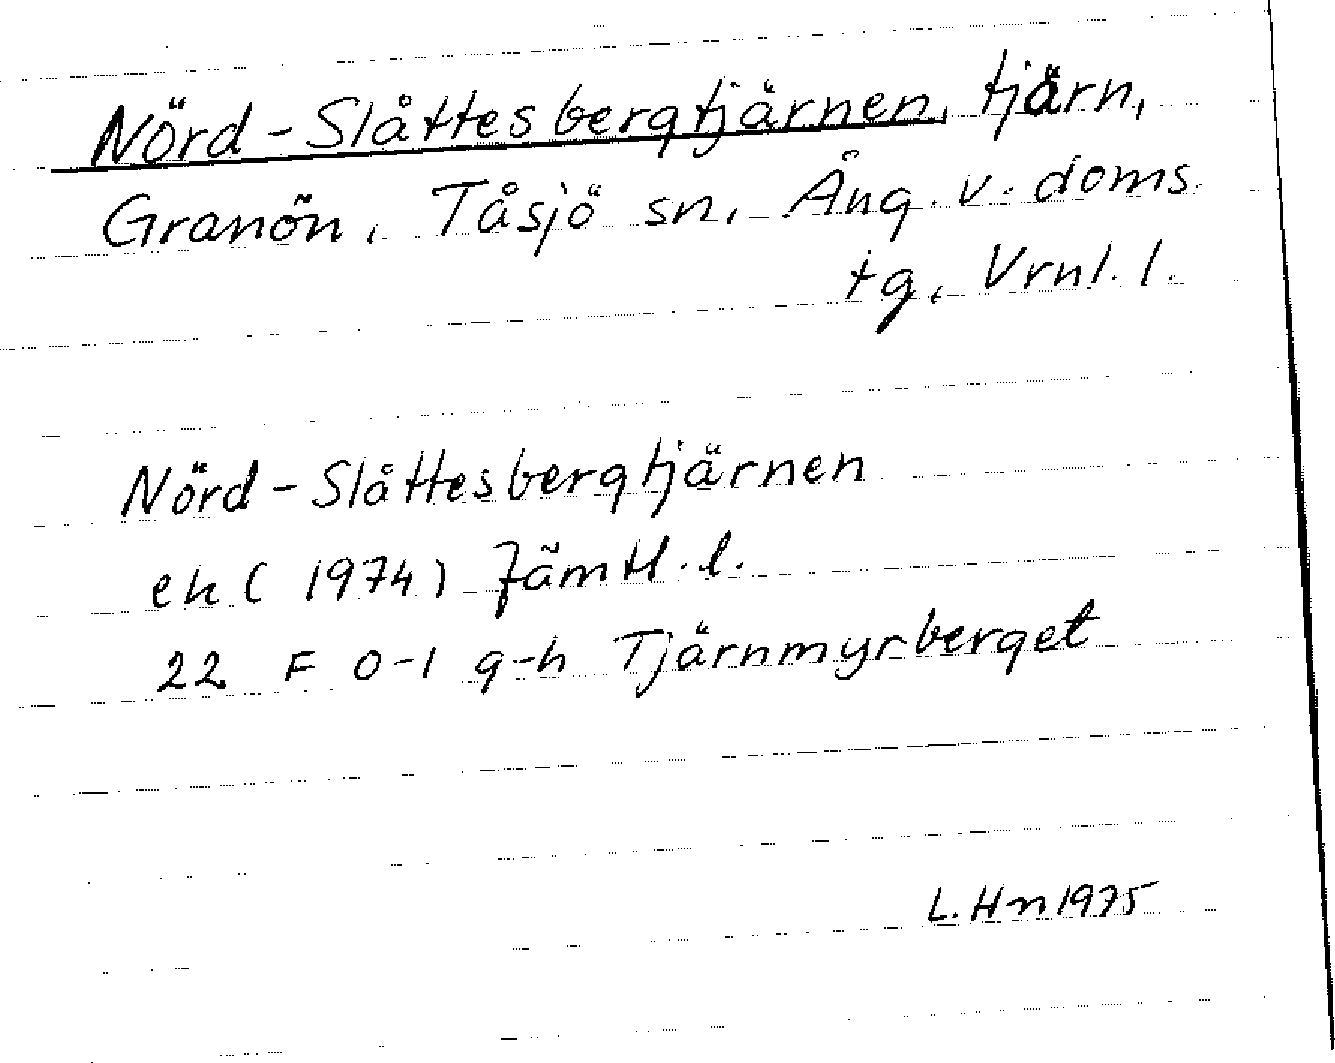 Nörd-Slåttesbergtjärnen, tjärn,
Granön, Tåsjö sn, Ång. v. doms.
tg, Vrnl. l.
Nörd-Slåttesbergtjärnen
ek (1974) Jämtl. l.
22 F 0-1 g-h Tjärnmyrberget
L. Hn 1975